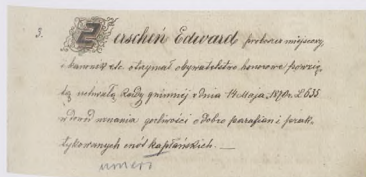 3. Zerscheń Edward proboszcz miejscowy
i kanonik etc. otrzymał obywatelstwo honorowe powzię-
tą uchwałą Rady gminnej z dnia 14 Maja 1870 r. L. 635
w dowód uznania gorliwości o dobro parafian i prak-
tykowanych cnót kapłańskich. —
umarł